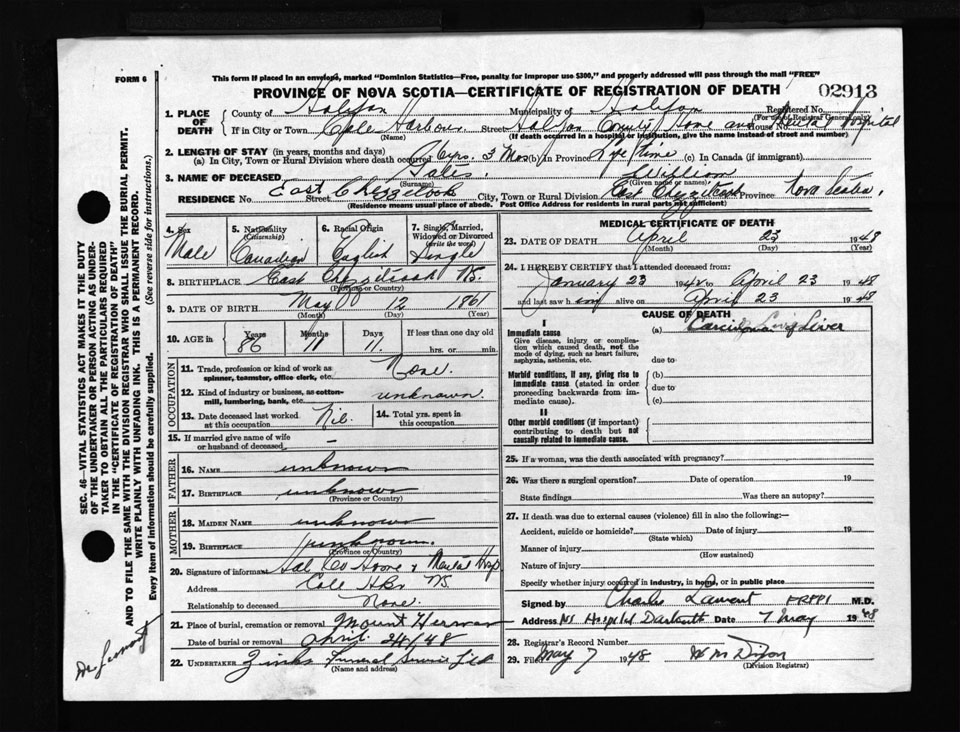 FORM 6
This form if placed in an envelope, marked "Dominion Statistics—Free, penalty for improper use $300," and properly addressed will pass through the mail "FREE"
PROVINCE OF NOVA SCOTIA—CERTIFICATE OF REGISTRATION OF DEATH
02913
1. PLACE OF DEATH
County of Halifax Municipality of Halifax Registered No.
(For use of Registrar General only)
If in City or Town Cole Harbour Street Halifax County Home and Mental Hospital House No.
(Name) (If death occurred in a hospital or institution, give the name instead of street and number)
2. LENGTH OF STAY (in years, months and days)
(a) In City, Town or Rural Division where death occurred yrs. 3 Mos (b) in Province Life time (c) In Canada (if immigrant)
3. NAME OF DECEASED William
(Surname) (Given name or names)
RESIDENCE No. East Chezzetcook Street City, Town or Rural Division East Chezzetcook Province Nova Scotia.
(Residence means usual place of abode. Post Office Address for residents in rural parts not sufficient)
4. Sex
Male
5. Nationality
(Citizenship)
Canadian
6. Racial Origin
English
7. Single, Married, Widowed or Divorced
(write the word)
Single
8. BIRTHPLACE East Chezzetcook NS.
(Province or Country)
9. DATE OF BIRTH May 12 1861
(Month) (Day) (Year)
10. AGE in
Years Months Days If less than one day old
86 11 11 hrs. or min.
OCCUPATION
11. Trade, profession or kind of work as spinner, teamster, office clerk, etc. None.
12. Kind of industry or business, as cotton-mill, lumbering, bank, etc. unknown
13. Date deceased last worked at this occupation Nil.
14. Total yrs. spent in this occupation
15. If married give name of wife or husband of deceased –
FATHER
16. NAME unknown
17. BIRTHPLACE unknown
(Province or Country)
MOTHER
18. MAIDEN NAME unknown
19. BIRTHPLACE unknown.
(Province or Country)
20. Signature of informant Hal Co Home & Mental Hosp
Address Cole Hbr NS
Relationship to deceased None
21. Place of burial, cremation or removal Mount Herman
Date of burial or removal April 24/48
22. UNDERTAKER Zinks Funeral Service Ltd
(Name and address)
MEDICAL CERTIFICATE OF DEATH
23. DATE OF DEATH April 23 1948
(Month) (Day) (Year)
24. I HEREBY CERTIFY that I attended deceased from:
January 23 194 to April 23 1948
and last saw h alive on April 23 1948
CAUSE OF DEATH
I
Immediate cause
Give disease, injury or complication which caused death, not the mode of dying, such as heart failure, asphyxia, asthenia, etc.
(a) Carcinoma of Liver
due to
Morbid conditions, if any, giving rise to immediate cause (stated in order proceeding backwards from immediate cause).
(b)
due to
(c)
II
Other morbid conditions (if important) contributing to death but not causally related to immediate cause.
25. If a woman, was the death associated with pregnancy?
26. Was there a surgical operation? Date of operation 19
State findings Was there an autopsy?
27. If death was due to external causes (violence) fill in also the following:—
Accident, suicide or homicide? Date of injury 19
(State which)
Manner of injury
(How sustained)
Nature of injury
Specify whether injury occurred in industry, in home, or in public place
Signed by Charles M.D.
Address NS Hospital Dartmouth Date 7 May 1948
28. Registrar's Record Number
29. Filed May 7 1948 Dixon
(Division Registrar)
SEC. 46—VITAL STATISTICS ACT MAKES IT THE DUTY
OF THE UNDERTAKER OR PERSON ACTING AS UNDER-
TAKER TO OBTAIN ALL THE PARTICULARS REQUIRED
IN THE "CERTIFICATE OF REGISTRATION OF DEATH"
AND TO FILE THE SAME WITH THE DIVISION REGISTRAR WHO SHALL ISSUE THE BURIAL PERMIT.
WRITE PLAINLY WITH UNFADING INK. THIS IS A PERMANENT RECORD.
Every item of information should be carefully supplied. (See reverse side for instructions.)